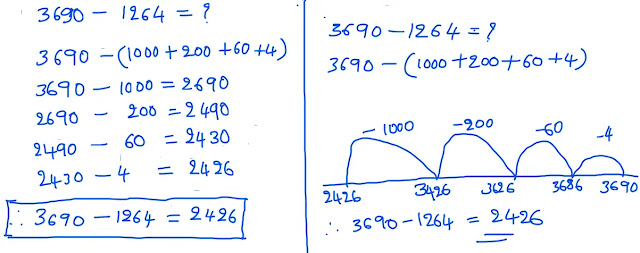 3690 - 1264 = ?
3690 - (1000+200+60+4)
3690 - 1000 = 2690
2690 - 200 = 2490
2490 - 60 = 2430
2430 - 4 = 2426
∴ 3690 - 1264 = 2426
3690 - 1264 = ?
3690 - (1000+200+60+4)
-1000 -200 -60 -4
2426 3426 3626 3686 3690
∴ 3690 - 1264 = 2426